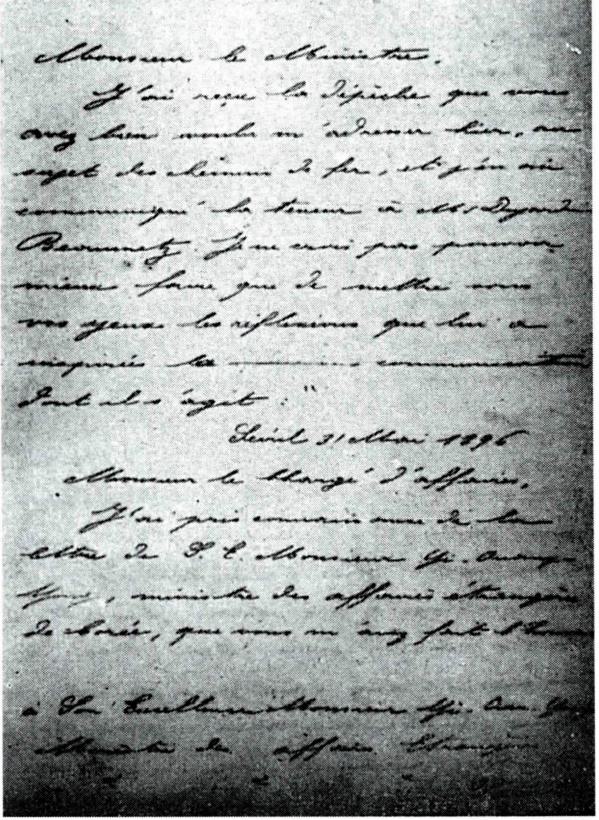 Monsieur le Ministre,
J'ai reçu la dépêche que vous
avez bien voulu m'adresser hier, au
sujet des chemins de fer, et j'en ai
communiqué la teneur à Mr
Je ne crois pas pouvoir
mieux faire que de mettre sous
vos yeux les réflexions que lui a
inspirées la communication
dont il s'agit : "
Séoul 31 Mai 1896
Monsieur le Chargé d'affaires,
J'ai pris connaissance de la
lettre de S. E. Monsieur Yi-
ministre des affaires étrangères
de Corée, que vous m'avez fait l'honneur
à Son Excellence Monsieur Yi-
Ministre des affaires Etrangères